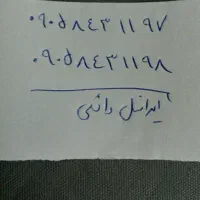 ۰۹۰۵۸۴۳۱۱۹۷
۰۹۰۵۸۴۳۱۱۹۸
ایرانسل دائمی